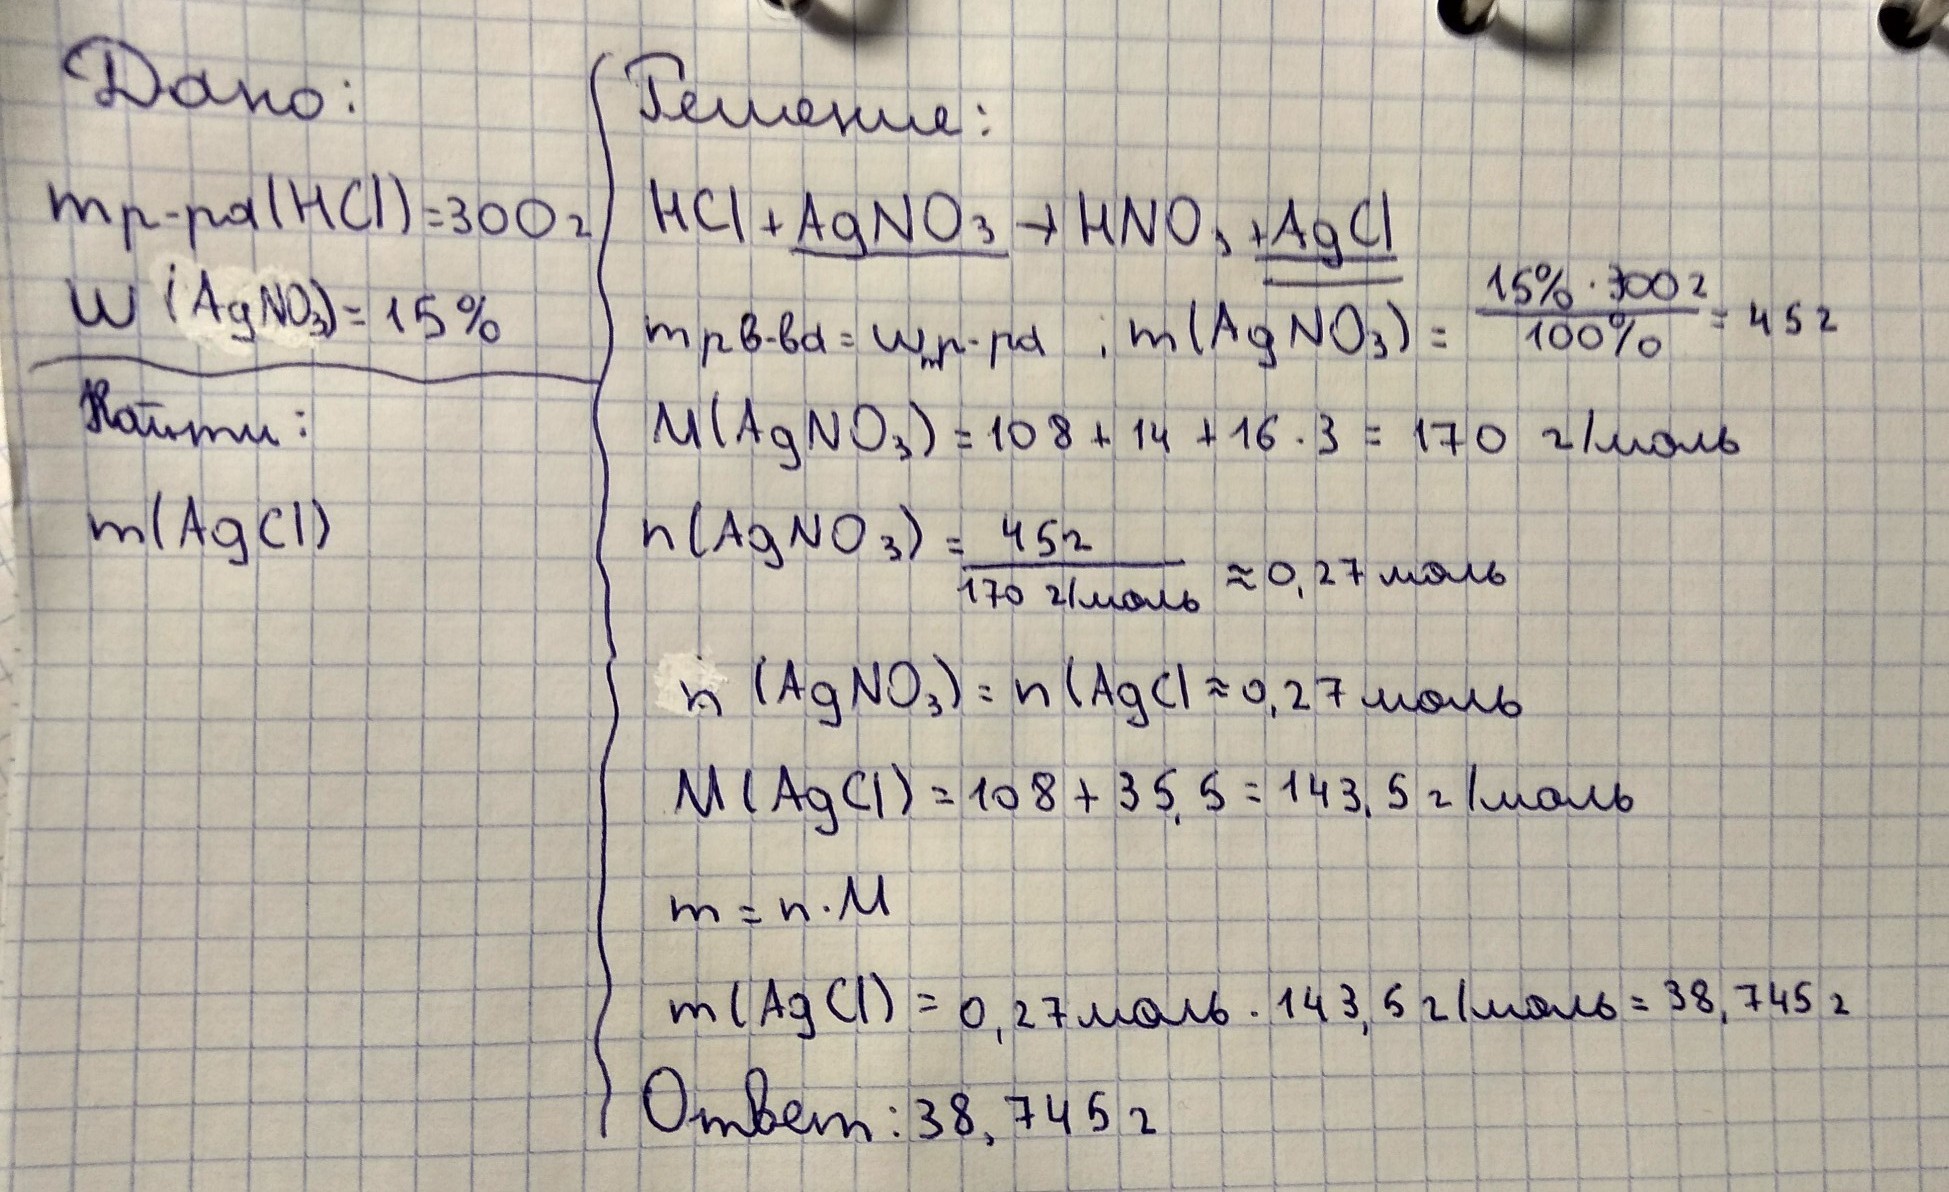 Дано:
mр-ра(HCl)=300г
w (AgNO3)=15%
Найти:
m(AgCl)
Решение:
HCl+AgNO3→HNO3+AgCl
mрв-ва=wmр-ра ; m(AgNO3)= 15%·300г/100% = 45г
M(AgNO3)=108+14+16·3=170 г/моль
n(AgNO3)= 45г/170 г/моль ≈0,27моль
n (AgNO3)=n(AgCl≈0,27моль
M(AgCl)=108+35,5=143,5г/моль
m=n·M
m(AgCl)=0,27моль·143,5г/моль=38,745г
Ответ:38,745г